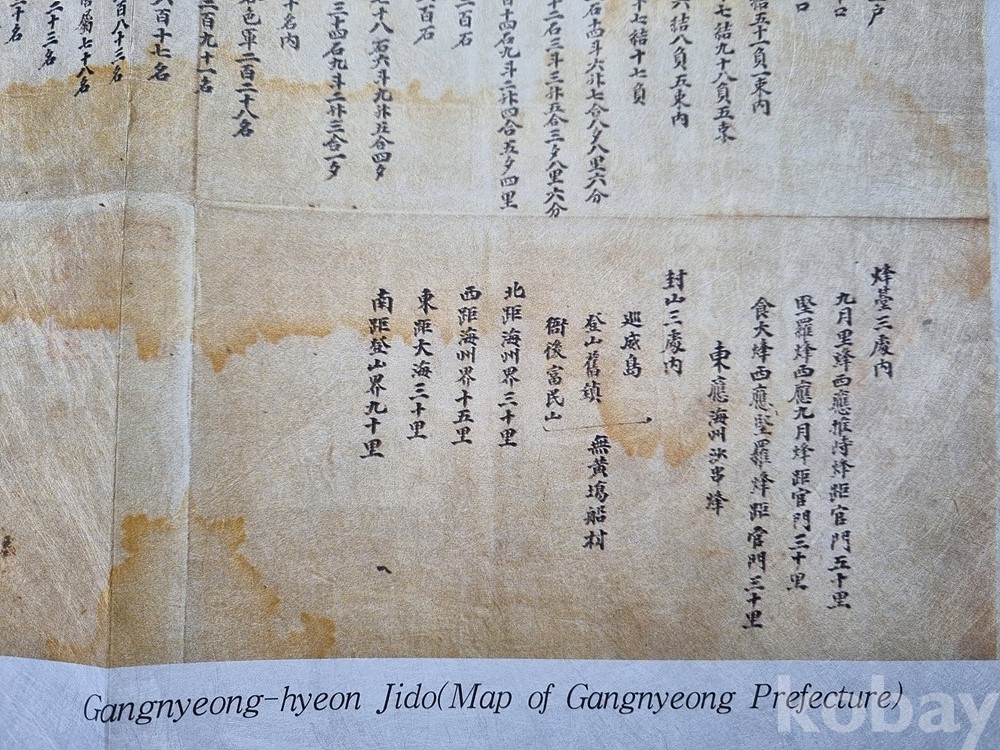 戶
口
口
結五十一負一束內
七結九十八負五束
六結八負五束內
十七結十七負
石十四斗六升七合八夕八里六分
十二石三斗三升五合三夕八里六分
十四石九斗二升四合五夕四里
二百石
百石
十八石六斗九升五合四夕
三十四石九斗二升三合一夕
十名內
色軍一百二十八名
百九十一名
百十七名
百八十三名
屬七十八名
二十三名
十名
烽臺三處內
九月里烽西應推峙烽距官門五十里
堅羅烽西應九月烽距官門三十里
食大烽西應堅羅烽距官門三十里
東應海州沙串烽
封山三處內
巡威島
登山舊鎮
衙後富民山
無黃塲船材
北距海州界三十里
西距海州界十五里
東距大海三十里
南距登山界九十里
Gangnyeong-hyeon Jido(Map of Gangnyeong Prefecture)
kobay